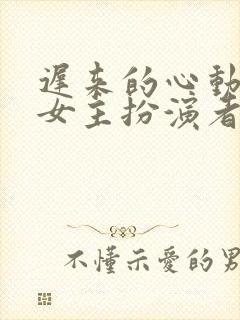 遲来的心動
女主扮演者
不懂示愛的男